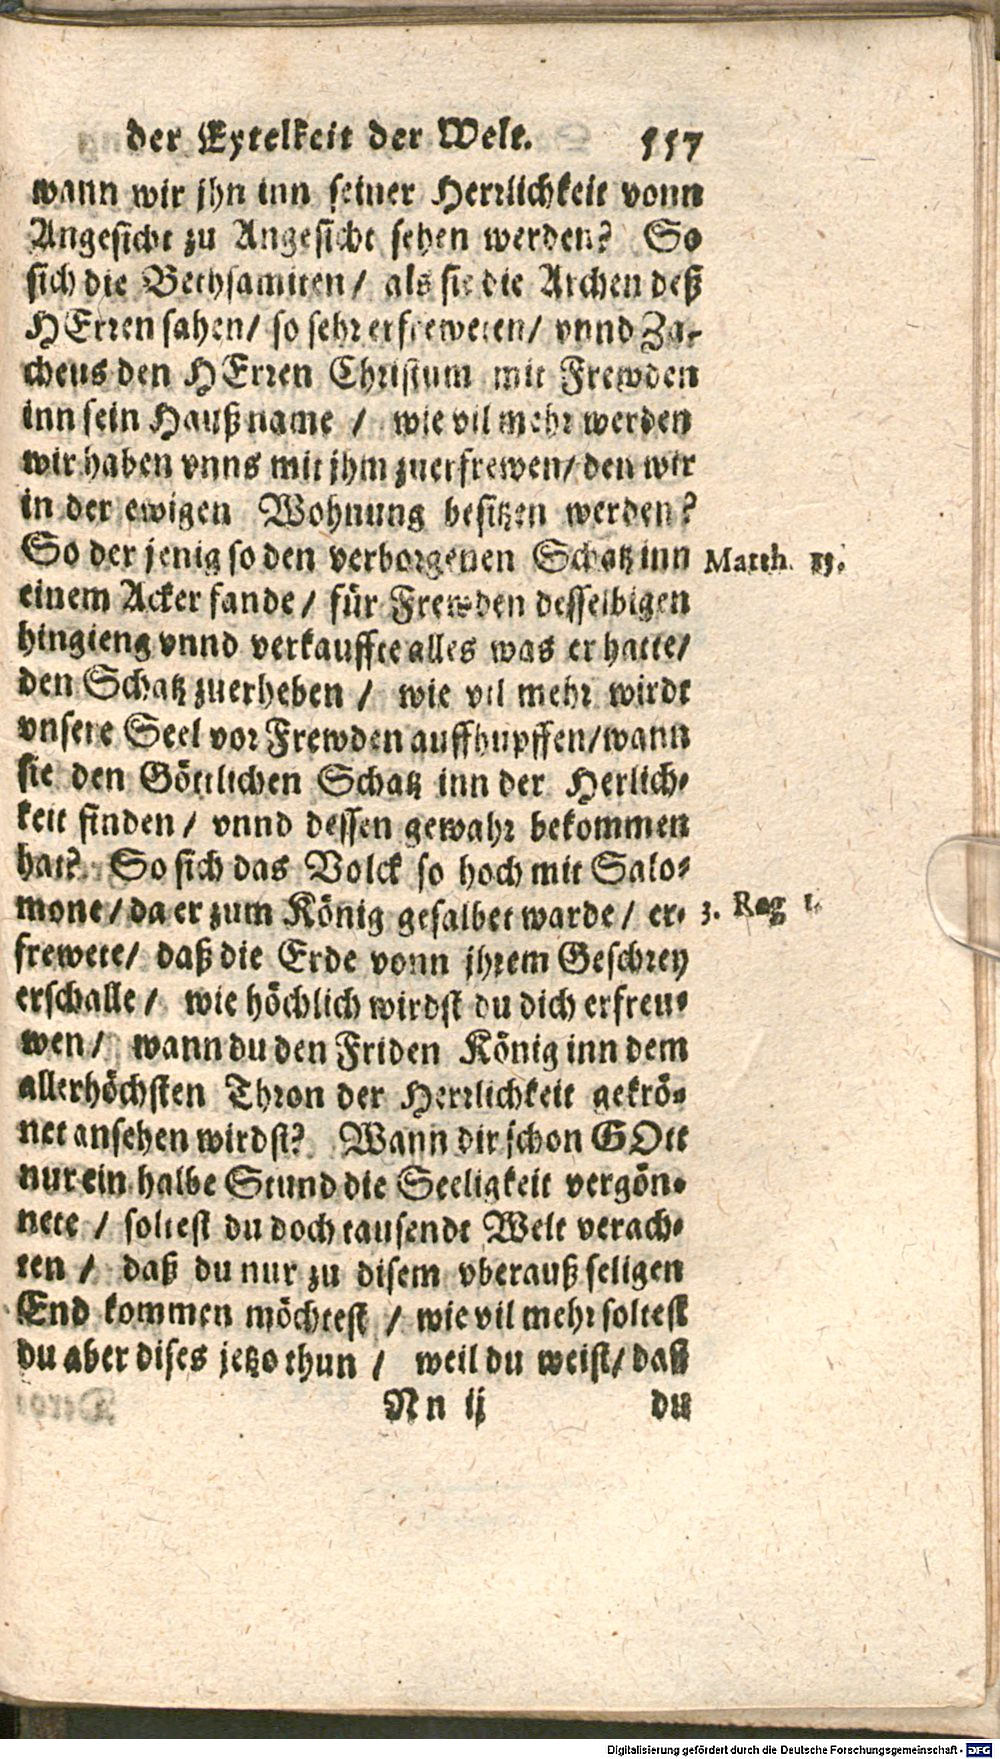 der Eytelkeit der Welt. 557
wann wir jhn inn seiner Herrlichkeit vonn
Angesicht zu Angesicht sehen werden? So
sich die Bethsamiten / als sie die Archen deß
HErren sahen / so sehr erfreweten / vnnd Za-
cheus den HErren Christum mit Frewden
inn sein Hauß name / wie vil mehr werden
wir haben vnns mit jhm zuerfrewen / den wir
in der ewigen Wohnung besitzen werden?
So der jenig so den verborgenen Schatz inn Matth. 13.
einem Acker fande / für Frewden desselbigen
hingieng vnnd verkauffte alles was er hatte /
den Schatz zuerheben / wie vil mehr wirdt
vnsere Seel vor Frewden auffhupffen / wann
sie den Göttlichen Schatz inn der Herlich-
keit finden / vnnd dessen gewahr bekommen
hat? So sich das Volck so hoch mit Salo-
mone / da er zum König gesalbet warde / er- 3. Reg 1.
frewete / daß die Erde vonn jhrem Geschrey
erschalle / wie höchlich wirdst du dich erfreu-
wen / wann du den Friden König inn dem
allerhöchsten Thron der Herrlichkeit gekrö-
net ansehen wirdst? Wann dir schon GOtt
nur ein halbe Stund die Seeligkeit vergön-
nete / soltest du doch tausendt Welt verach-
ten / daß du nur zu disem vberauß seligen
End kommen möchtest / wie vil mehr soltest
du aber dises jetzo thun / weil du weist / daß
Nn ij du
Digitalisierung gefördert durch die Deutsche Forschungsgemeinschaft - DFG